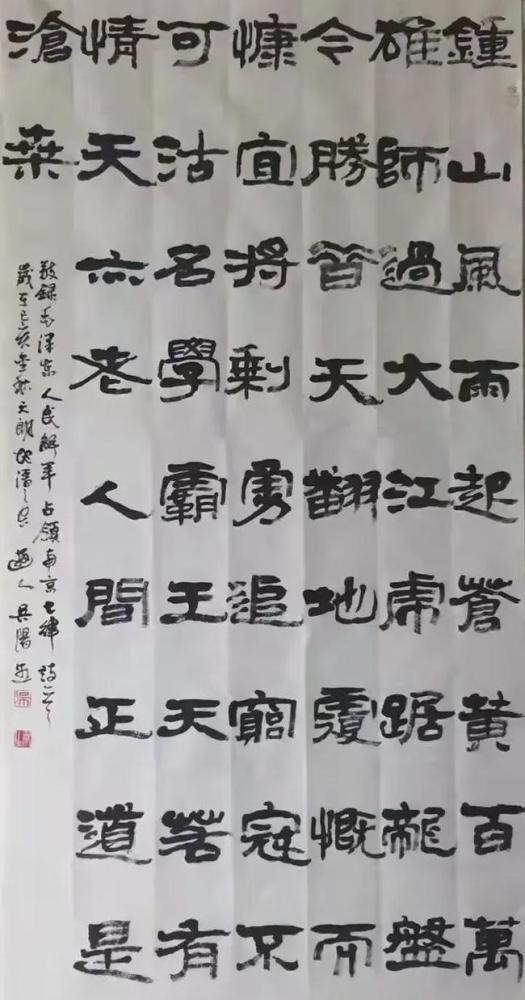 鍾山風雨起蒼黄百萬
雄師過大江虎踞龍盤
今勝昔天翻地覆慨而
慷宜將剩勇追窮寇不
可沽名學霸王天若有
情天亦老人間正道是
滄桑
敬録毛澤東人民解軍占領南京七律詩
歲在己亥金秋天朗